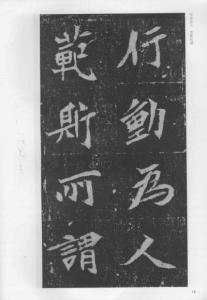 行動為人
範斯所謂